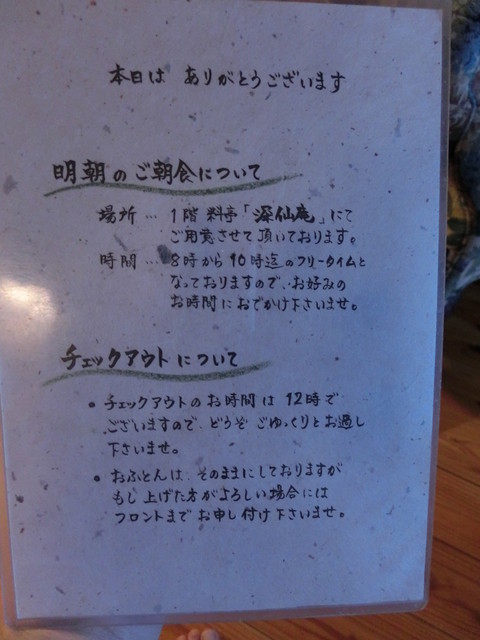 本日は ありがとうございます
明朝のご朝食について
場所…1階 料亭「深仙庵」にて
ご用意させて頂いております。
時間…8時から10時迄のフリータイムと
なっておりますので、お好みの
お時間におでかけ下さいませ。
チェックアウトについて
• チェックアウトのお時間は12時で
ございますので、どうぞ ごゆっくりとお過し
下さいませ。
• おふとんは、そのままにしておりますが
もし上げた方がよろしい場合には
フロントまでお申し付け下さいませ。